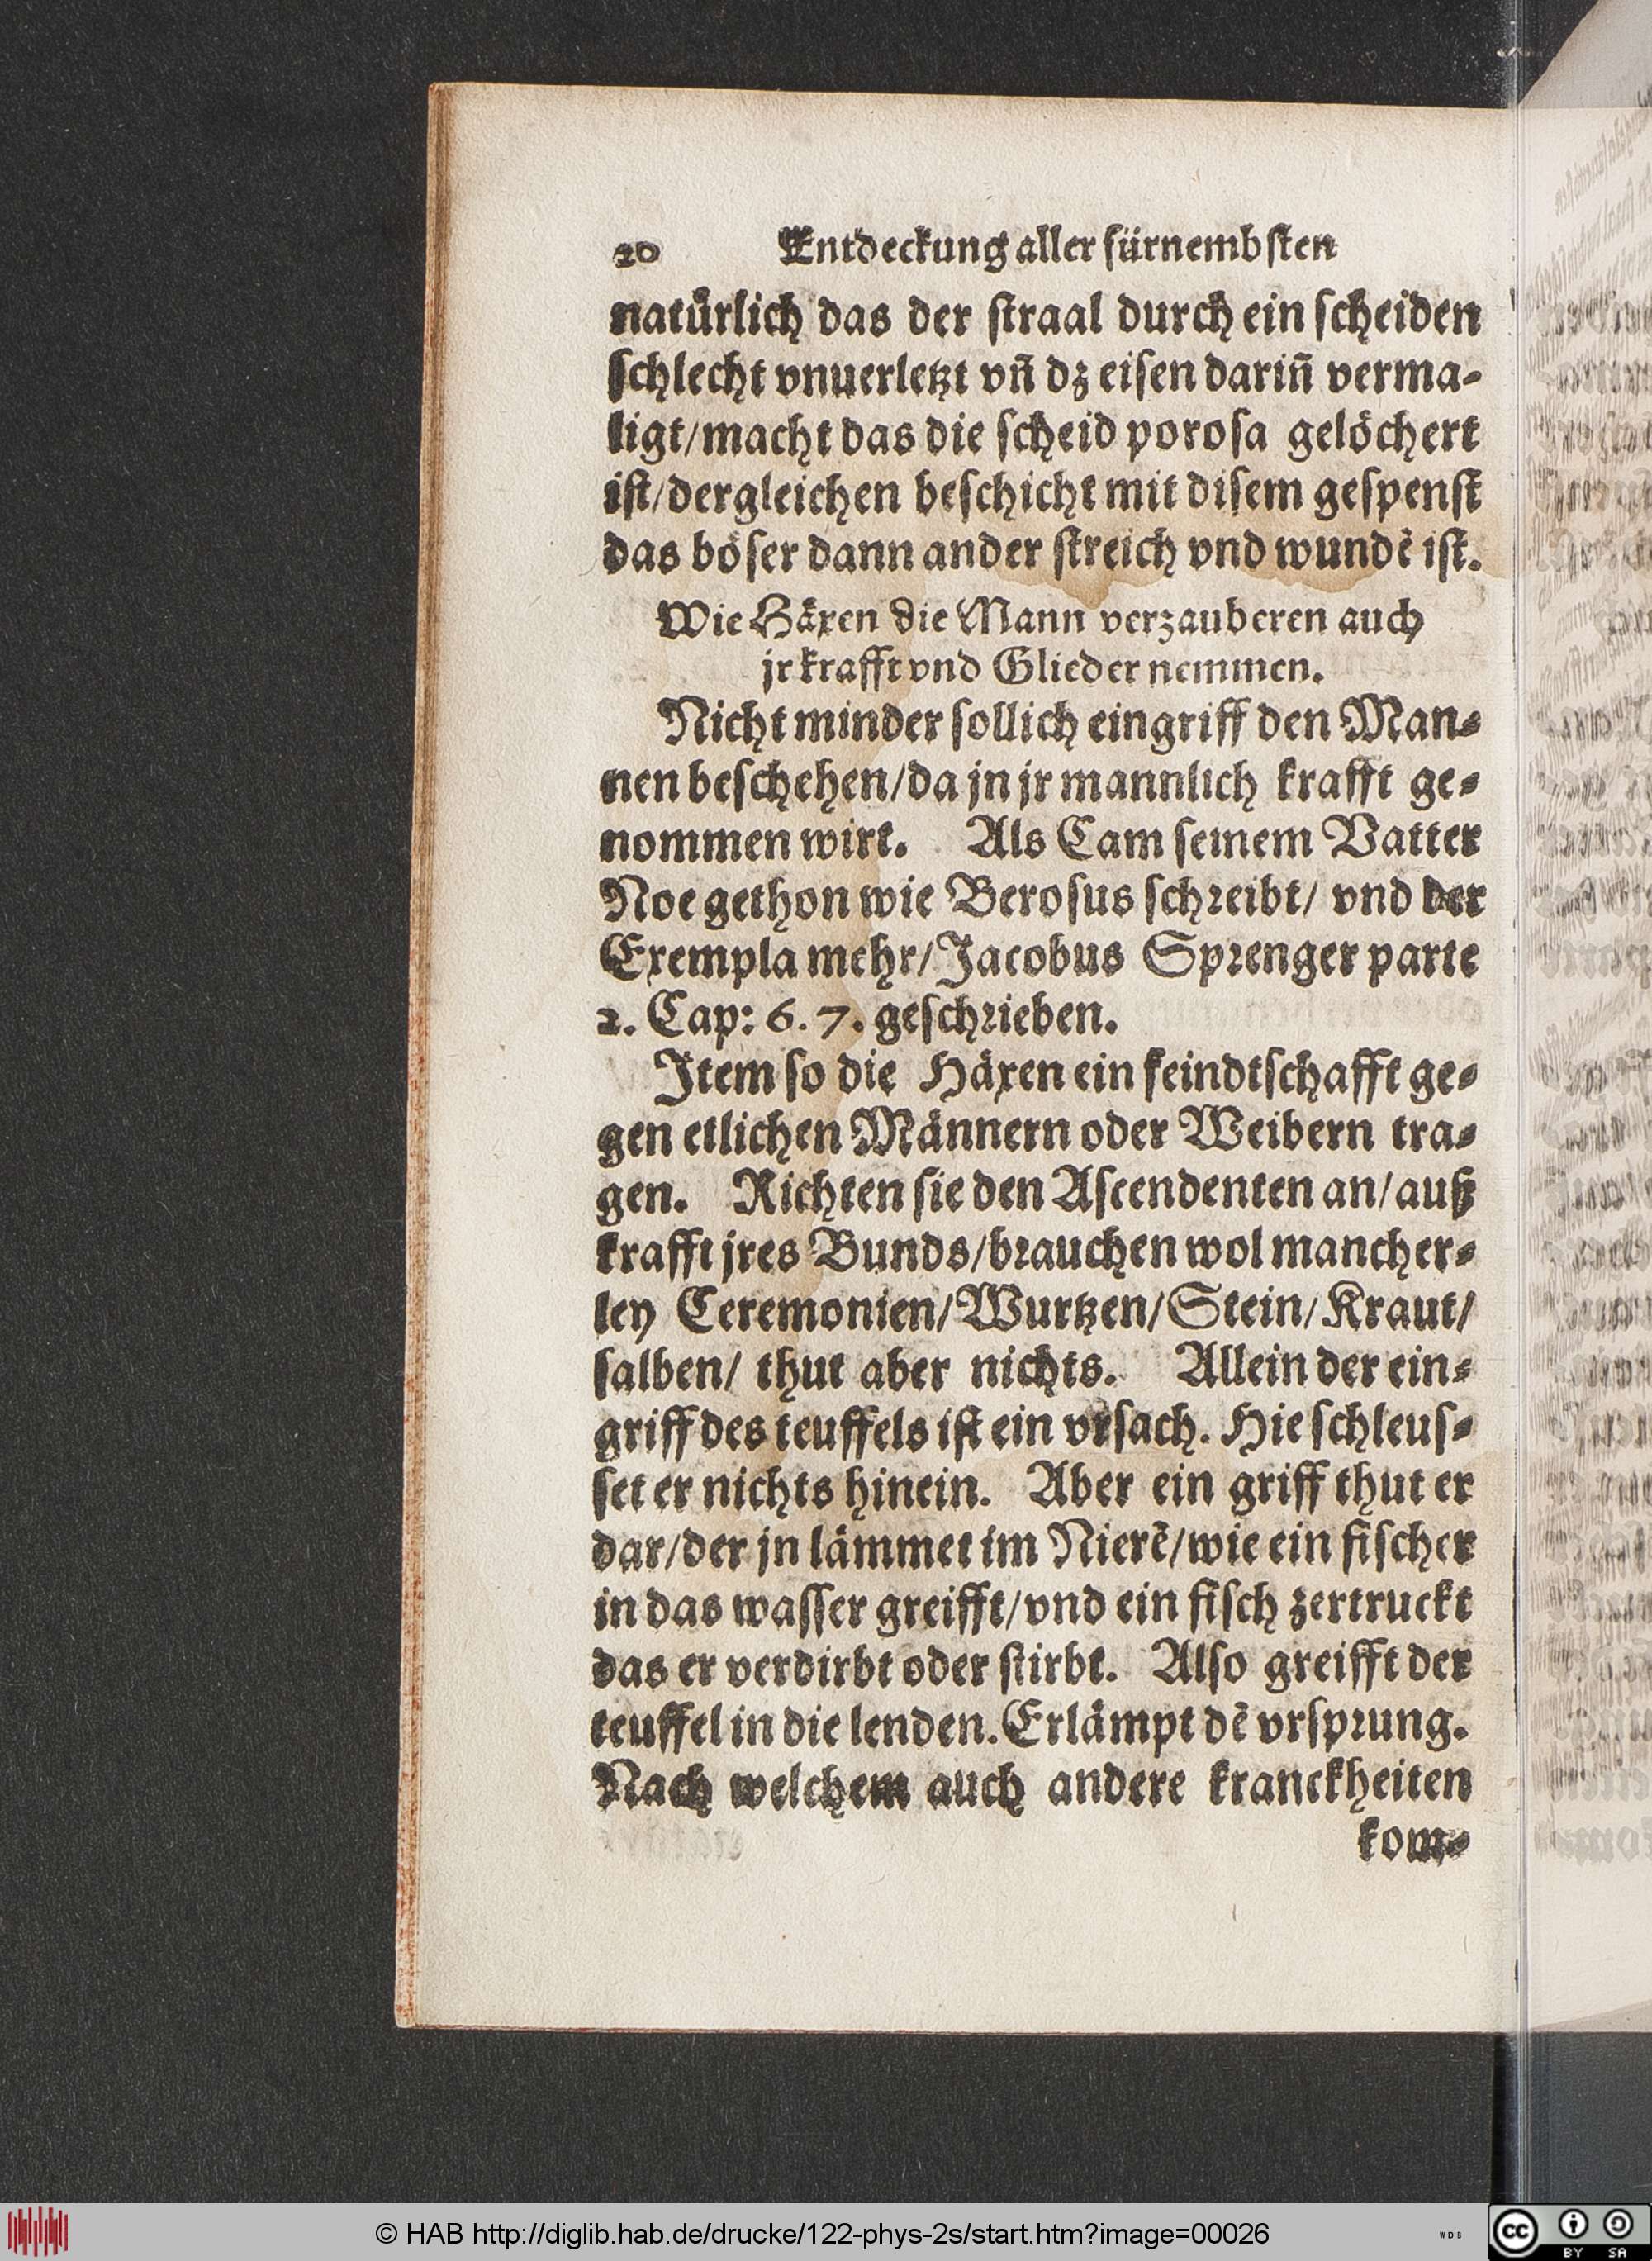 20 Entdeckung aller fürnembſten
natürlich das der ſtraal durch ein ſcheiden
ſchlecht vnuerletzt vñ dz eiſen dariñ verma⸗
ligt/macht das die ſcheid poroſa gelöchert
iſt/dergleichen beſchicht mit diſem geſpenſt
das böſer dann ander ſtreich vnd wundẽ iſt.
Wie Häxen die Mann verzauberen auch
jr krafft vnd Glieder nemmen.
Nicht minder ſollich eingriff den Man⸗
nen beſchehen/da jn jr mannlich krafft ge⸗
nommen wirt. Als Cam ſeinem Vatter
Noe gethon wie Beroſus ſchreibt/ vnd der
Exempla mehr/Jacobus Sprenger parte
2. Cap: 6. 7. geſchrieben.
Item ſo die Häxen ein feindtſchafft ge⸗
gen etlichen Männern oder Weibern tra⸗
gen. Richten ſie den Aſcendenten an/auß
krafft jres Bunds/brauchen wol mancher⸗
ley Ceremonien/Wurtzen/Stein/Kraut/
ſalben/ thut aber nichts. Allein der ein⸗
griff des teuffels iſt ein vrſach. Hie ſchleuſ⸗
ſet er nichts hinein. Aber ein griff thut er
dar/der jn lämmet im Nierẽ/wie ein fiſcher
in das waſſer greifft/vnd ein fiſch zertruckt
das er verdirbt oder ſtirbt. Alſo greifft der
teuffel in die lenden. Erlämpt dẽ vrſprung.
Nach welchem auch andere kranckheiten
kom⸗
© HAB http://diglib.hab.de/drucke/122-phys-2s/start.htm?image=00026
WDB
cc BY SA